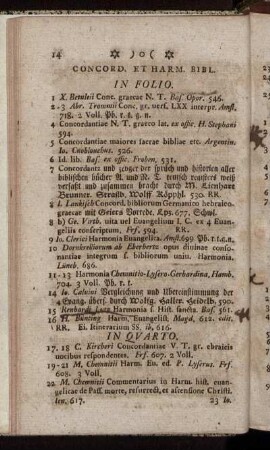 14 ✡ )o( ✡
CONCORD. ET HARM. BIBL.
IN FOLIO.
1 X. Betuleii Conc. graecae N. T. Bas. Opor. 546.
2-3 Abr. Trommii Conc. gr. vers. LXX interpr. Amst.
718. 2 Voll. Pb. t. t. q. n.
4 Concordantiae N. T. graeco lat. ex offic. H. Stephani
594.
5 Concordantiae maiores sacrae bibliae etc. Argentin.
Io. Cnoblouchus. 526.
6 Id. lib. Bas. ex offic. Froben, 531.
7 Concordantz und zeyger der sprüch und historien aller
biblischen bücher A. und N. T. teutsch registers weiß
verfaßt und zusammen bracht durch M. Lienhart
Brunner. Straßb. Wolff Köpphl. 530. RR.
8 I. Lankisch Concord. bibliorum Germanico hebraico-
graecae mit Geiers Vorrede, Lps. 677. Schul.
b) Ge. Wirth. vita uel Euangelium I. C. ex 4 Euan-
geliis conscriptum, Frf. 594. RR.
9 Io. Clerici Harmonia Evangelica. Amst. 699. Pb. t.t.q.n.
10 Dornkreiliorum ab Eberhertz opus divinae conso-
nantiae integrum s. bibliorum univ. Harmonia.
Lüneb. 686.
11-13 Harmonia Chemnitio-Lysero-Gerhardina, Hamb.
704. 3 Voll. Pb. t. t.
14 Io. Caluini Vergleichung und Ubereinstimmung der
4 Evang. übers. durch Wolfg. Haller. Heidelb. 590.
15 Harmonia s. Hist. sanctis. Bas. 561.
16 H. Bünting Harm. Evangelist. Magd. 612. edit.
RR. Ei. Itinerarium SS. ib, 616.
IN QVARTO.
17. 18 C. Kircheri Concordantiae V. T. gr. ebraeis
uocibus respondentes. Frf. 607. 2 Voll.
19-21 M. Chemnitii Harm. Eu. ed. P. Lyserus. Frf.
608. 3 Voll.
22 M. Chemnitii Commentarius in Harm. hist. euan-
gelicae de Pass. morte, resurrect, et ascensione Christi.
617. 23 Io.